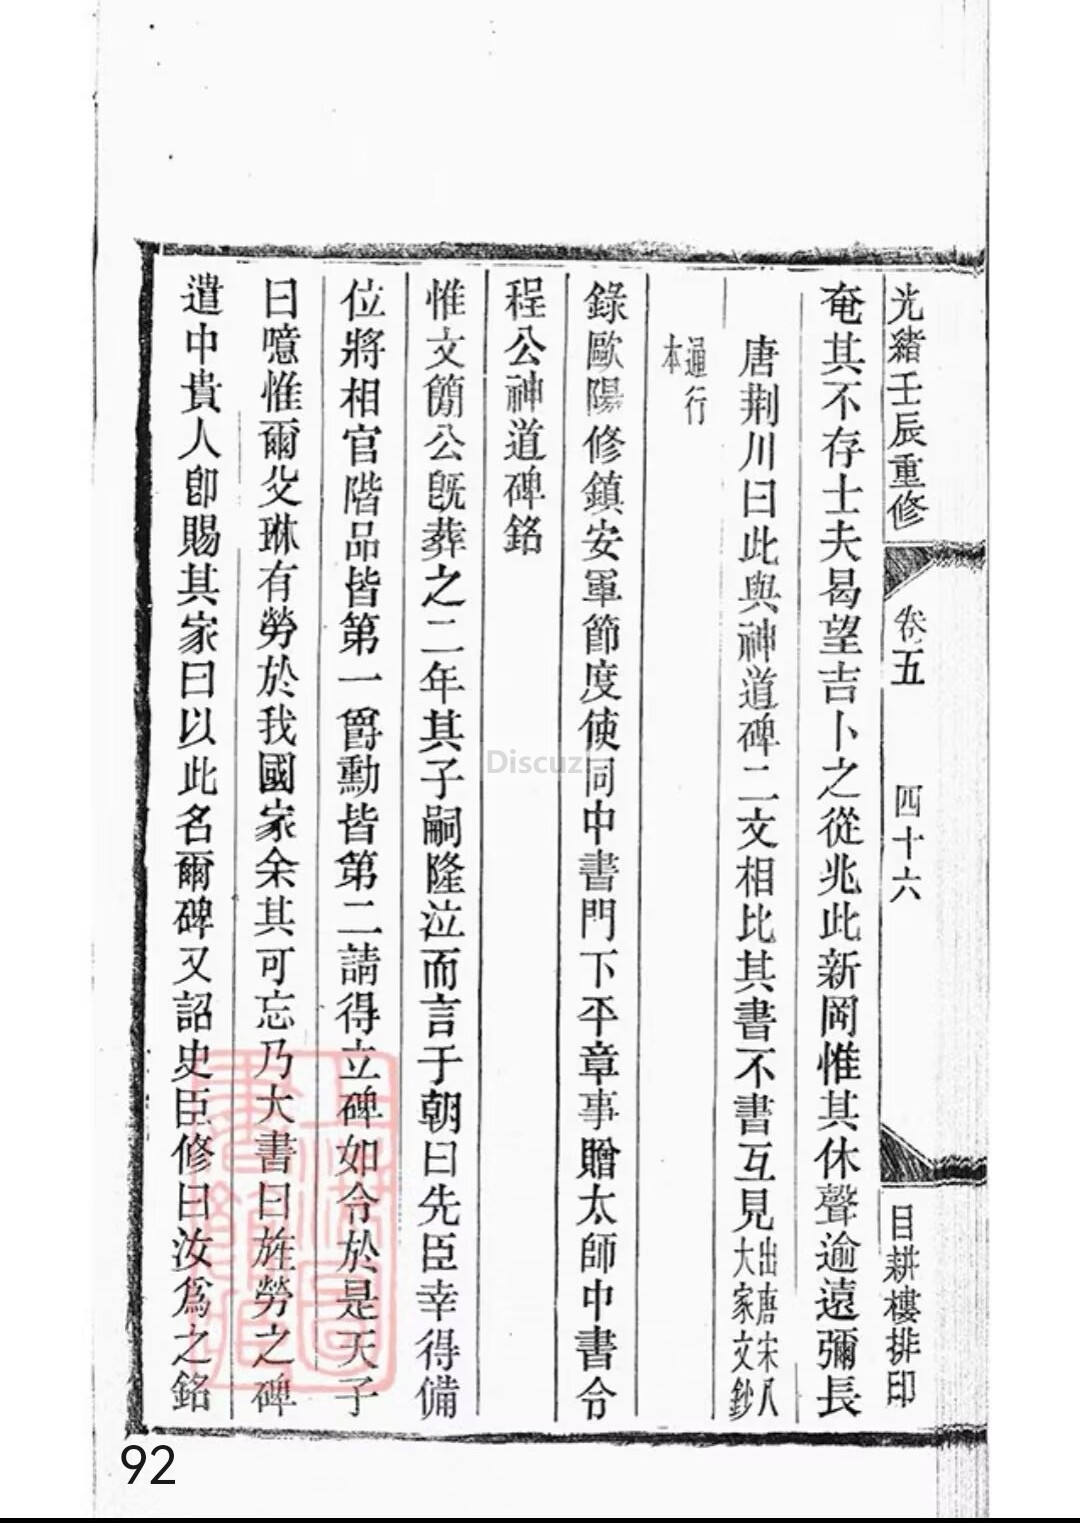 光緒壬辰重修 卷五 四十六 目耕樓排印
奄其不存士夫曷望吉卜之從兆此新岡惟其休聲逾遠彌長
唐荆川曰此與神道碑二文相比其書不書互見出唐宋八大家文鈔
通行本
錄歐陽修鎮安軍節度使同中書門下平章事贈太師中書令
程公神道碑銘
惟文簡公旣葬之二年其子嗣隆泣而言于朝曰先臣幸得備
位將相官階品皆第一爵勳皆第二請得立碑如令於是天子
曰噫惟爾父琳有勞於我國家余其可忘乃大書曰旌勞之碑
遣中貴人卽賜其家曰以此名爾碑又詔史臣修曰汝爲之銘
上海圖書館藏
Discuz!
92